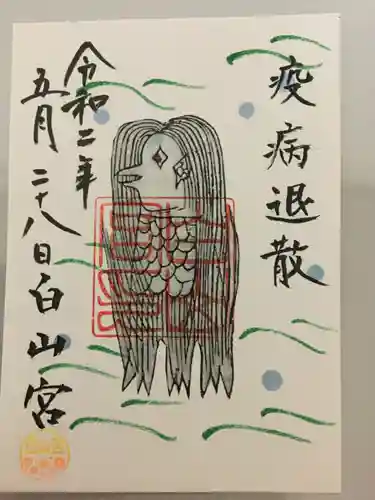 疫病退散
令和二年
五月二十八日白山宮